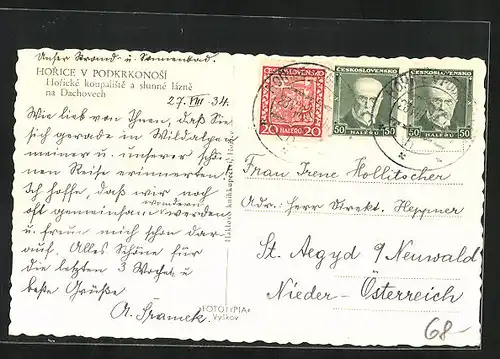 Unser Strand- u. Sonnenbad.
HOŘICE V PODKRKONOŠÍ
Hořické koupaliště a slunné lázně
na Dachovech
27. VIII 34.
Wie lieb von Ihnen, daß Sie
sich gerade in Wildalpen
meiner u. unserer schö-
nen Reise erinnerten!
Ich hoffe, daß wir noch
oft gemeinsam wandern werden
u. freue mich schon dar-
auf. Alles Schöne für
die letzten 3 Wochen u.
beste Grüße
A. Šramek.
FOTOTYPIA
Vyškov
ČESKOSLOVENSKO
20 HALÉŘŮ 20
ČESKOSLOVENSKO
50 HALÉŘŮ 50
ČESKOSLOVENSKO
50 HALÉŘŮ 50
Frau Irene Hollitscher
Adr. Herr Direkt. Heppner
St. Aegyd a/Neuwald
Nieder-Österreich
68-